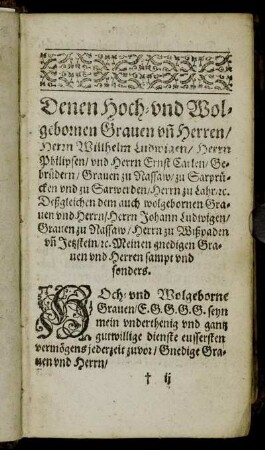 Denen Hoch- vnd Wol-
gebornen Grauen vñ Herren/
Herrn Willhelm Ludwigen/ Herrn
Philipsen/ vnd Herrn Ernst Carlen/ Ge-
brüdern/ Grauen zu Nassaw/ zu Sarprü-
cken vnd zu Sarwenden/ Herrn zu Lahr/ꝛc.
Deßgleichen dem auch wolgebornen Gra-
uen vnd Herrn/ Herrn Johann Ludwigen/
Grauen zu Nassaw/ Herrn zu Wißpaden
vñ Jetzstein/ꝛc. Meinen gnedigen Gra-
uen vnd Herren sampt vnd
sonders.
HOch- vnd Wolgeborne
Grauen/ E. G. G. G. G. seyn
mein vnderthenig vnd gantz
gutwillige dienste eussersten
vermögens jederzeit zuvor/ Gnedige Gra-
uen vnd Herrn/
† ij